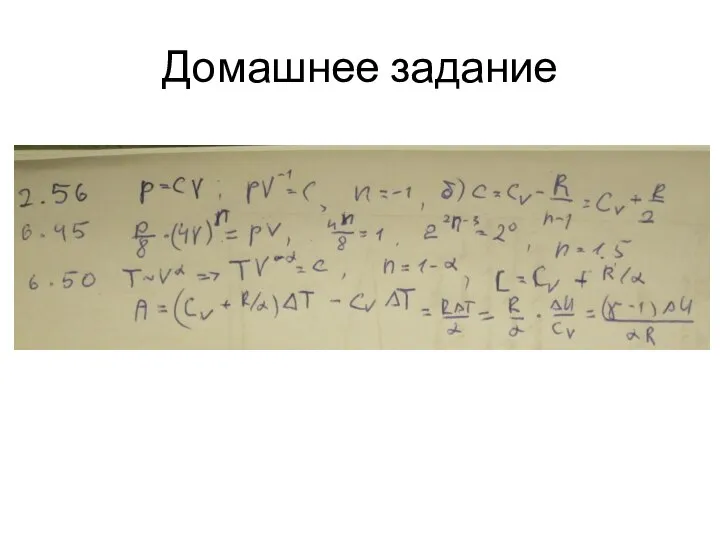 Домашнее задание
2.56 p=CV; pV⁻¹=C, n=-1, б) C=Cᵥ-R/(n-1)=Cᵥ+R/2
6.45 p/8·(4V)ⁿ=pV, 4ⁿ/8=1, 2²ⁿ⁻³=2⁰, n=1.5
6.50 T~Vᵅ => TV⁻ᵅ=C, n=1-α, C=Cᵥ+R/α
A=(Cᵥ+R/α)ΔT-CᵥΔT=RΔT/α=R/α·ΔU/Cᵥ=(γ-1)ΔU/αR